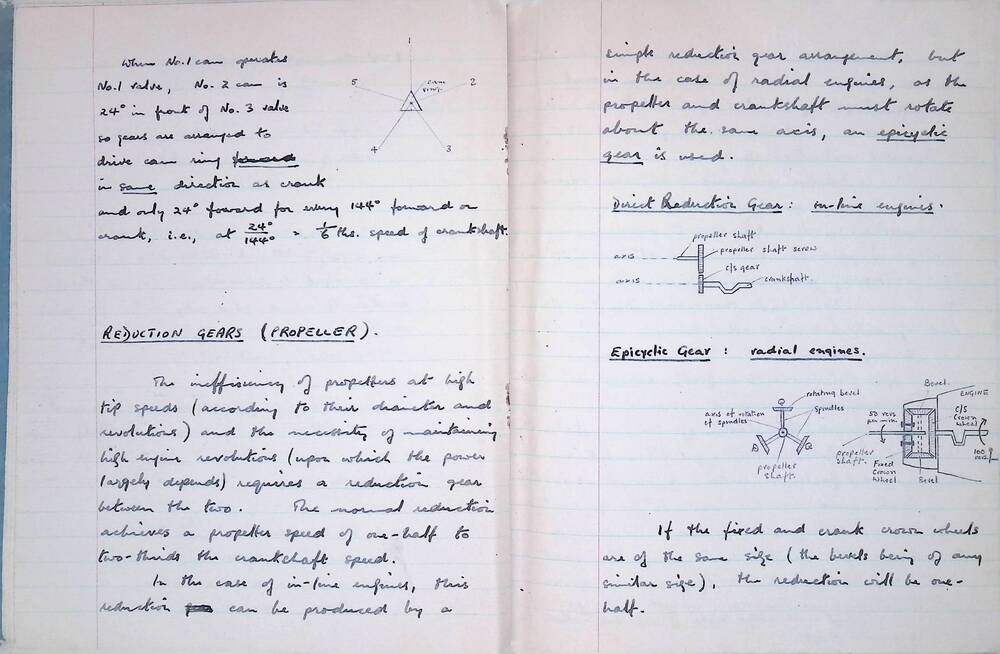 When No.1 cam operates
No.1 valve, No. 2 cam is
24° in front of No. 3 valve
so gears are arranged to
drive cam ring forward
in same direction as crank
and only 24° foward for every 144° forward on
crank, i.e., at 24°/144° = 1/6 ths. speed of crankshaft.
1
5
cam
ring
2
4
3
REDUCTION GEARS (PROPELLER).
The inefficiency of propellers at high
tip speeds (according to their diameter and
revolutions) and the necessity of maintaining
high engine revolutions (upon which the power
largely depends) requires a reduction gear
between the two. The normal reduction
achieves a propeller speed of one-half to
two-thirds the crankshaft speed.
In the case of in-line engines, this
reduction can be produced by a
simple reduction gear arrangement, but
in the case of radial engines, as the
propeller and crankshaft must rotate
about the same axis, an epicyclic
gear is used.
Direct Reduction Gear: in-line engines.
propeller shaft
axis
propeller shaft screw
c/s gear
axis
crankshaft.
Epicyclic Gear: radial engines.
rotating bevel
axis of rotation
of spindles
spindles
propeller
shaft.
Bevel.
ENGINE
50 revs
per min
C/S
Crown
Wheel
propeller
shaft.
Fixed
Crown
Wheel
Bevel
100
revs
If the fixed and crank crown wheels
are of the same size (the bevels being of any
similar size), the reduction will be one-
half.